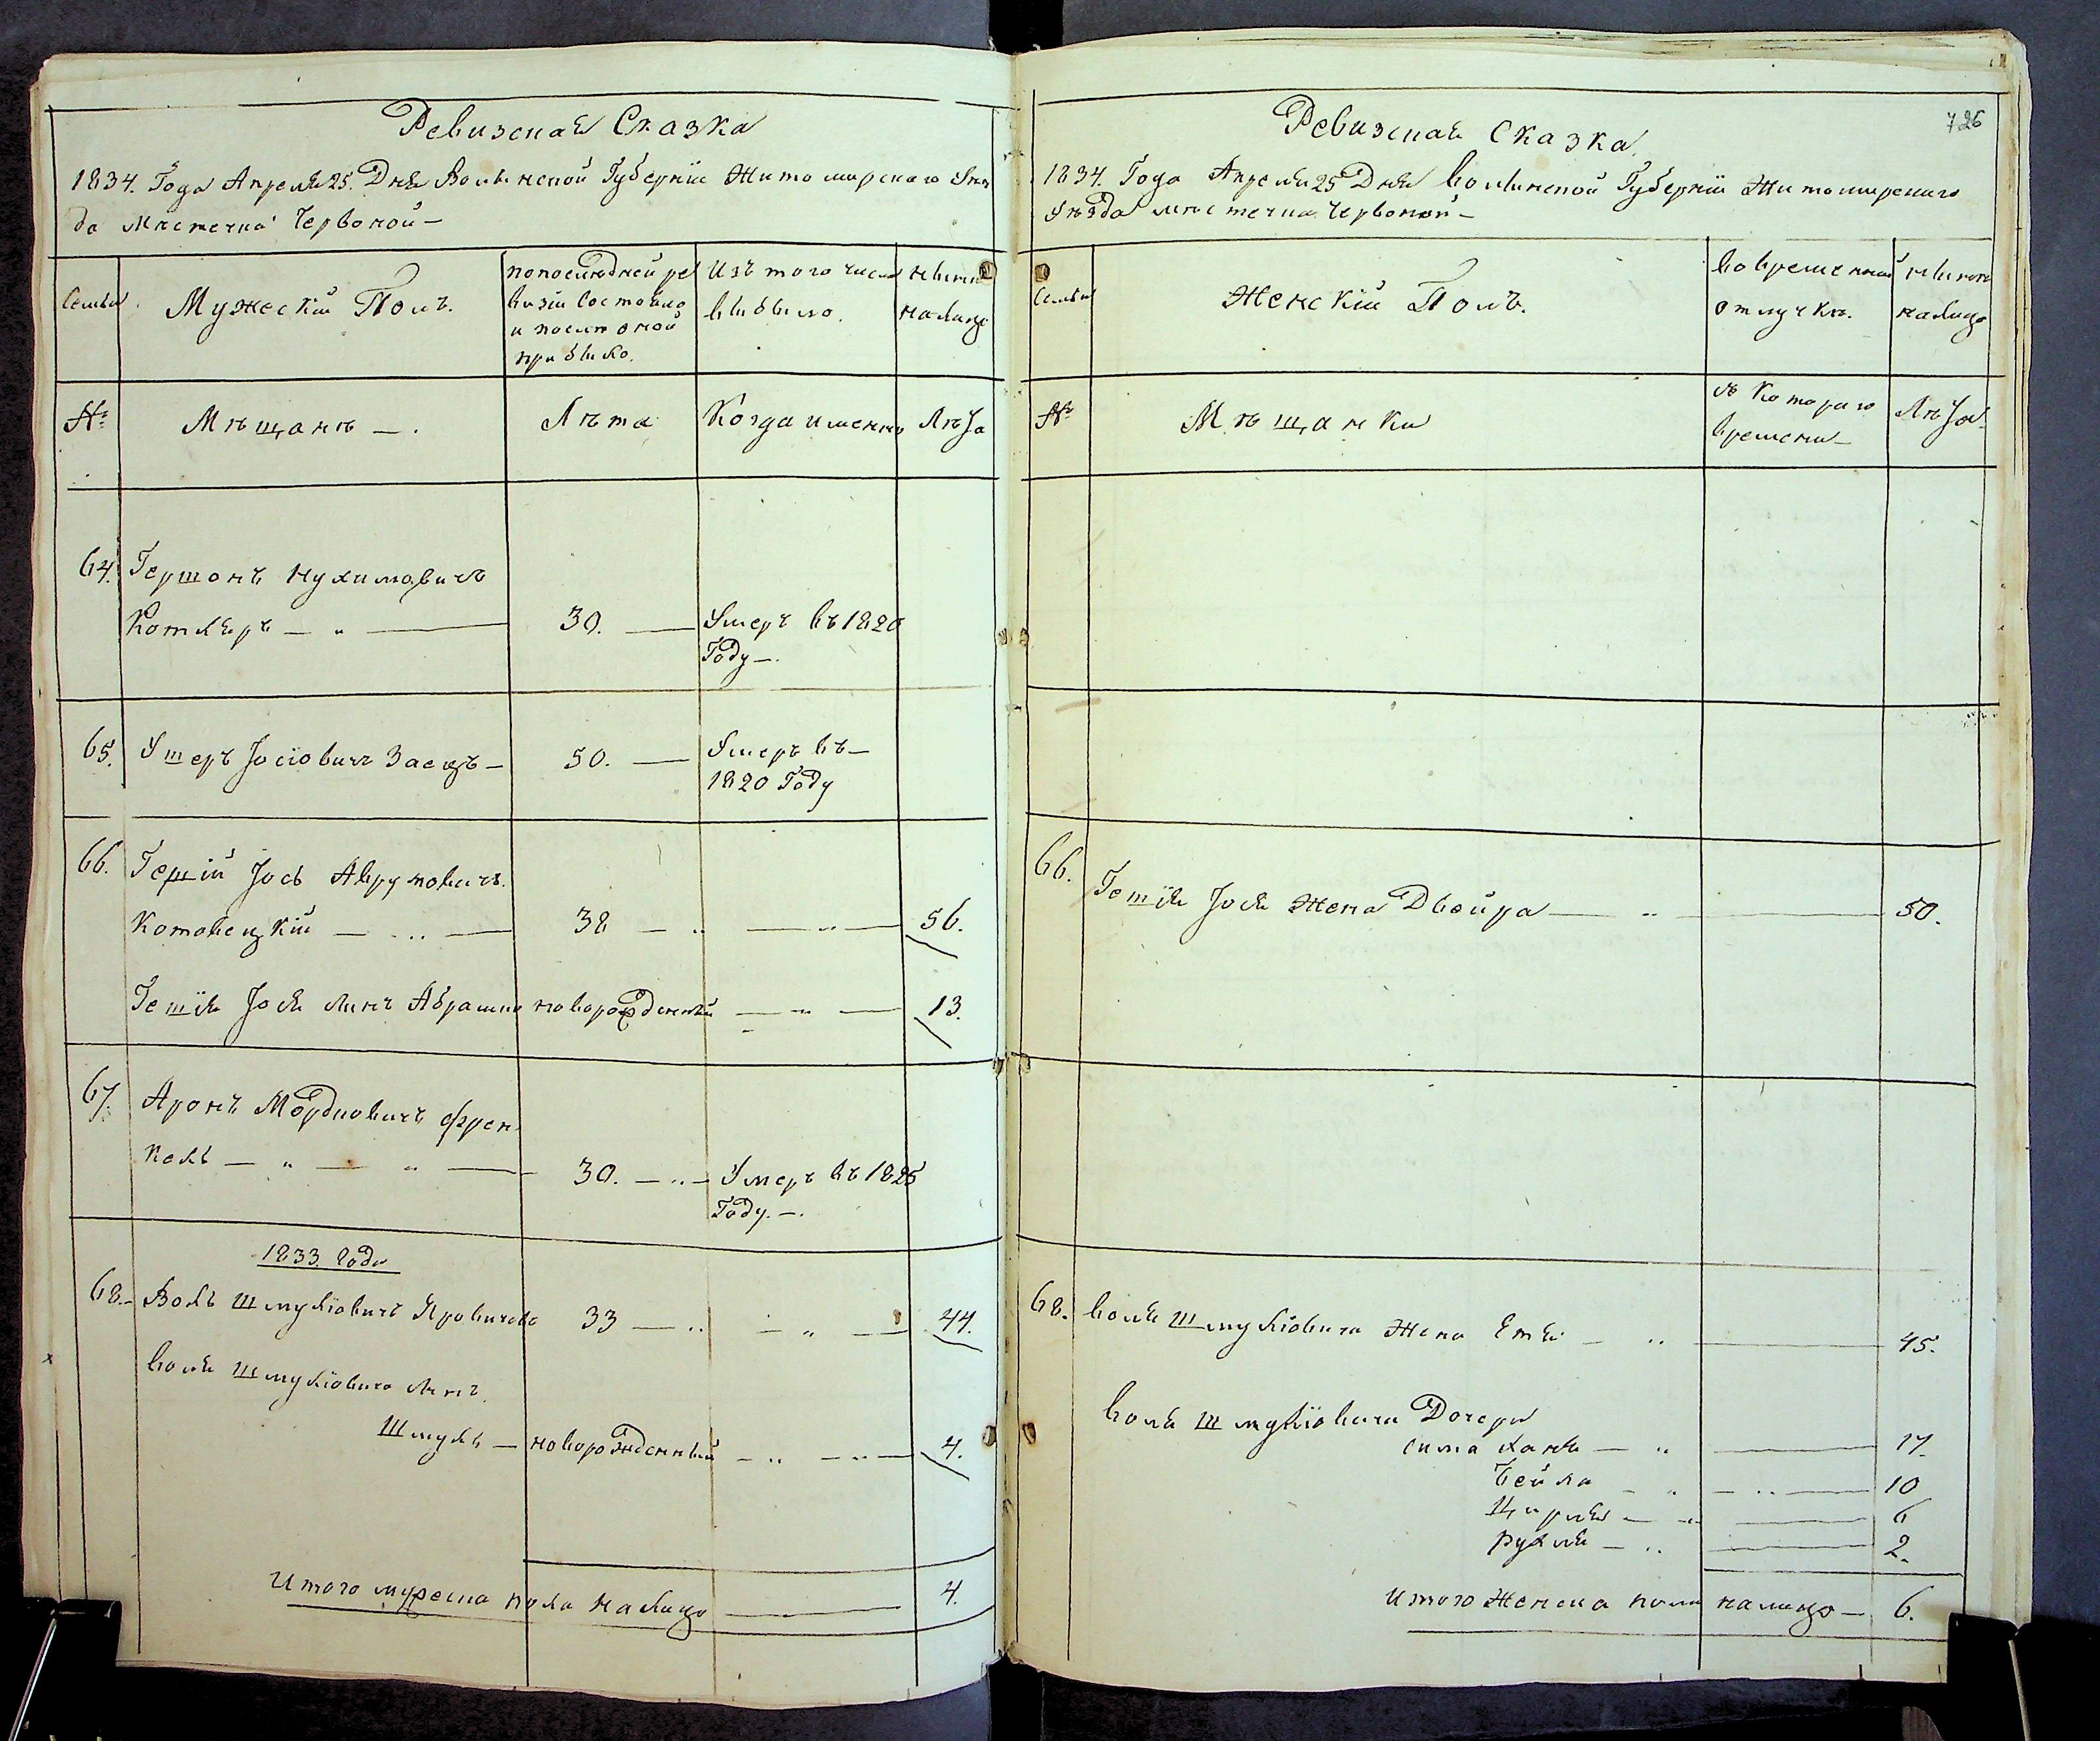 Ревизская Сказка
1834. Года Апреля 25. Дня Волынской Губернїи Житомирского Уѣз
да Мѣстечка Червоной —
Семьи
Мужескїй Полъ.
по последней ре
визїи состояло
и послѣ оной
прибыло.
Изъ того числа
выбыло.
нынѣ
налицо
№
Мѣщанѣ — .
Лѣта
Когда именно
Лѣта
64. Гершонъ Нухимовичъ
Котляръ — " — 30. — Умеръ въ 1820
Году —.
65. Ушеръ Іосїовичъ Заецъ — 50. — Умеръ въ —
1820 Году
66. Гершїй Іось Аврумовичъ
Котовецкїй — .. — 38 — .. — .. — 56.
Гешїя Іося сынъ Абрамко новорожденный — .. — 13.
67. Аронъ Мордковичъ Френ
кель — " — " — 30. — .. — Умеръ въ 1825
Году. —.
1833 года
68. Воль Шмулїовичъ 33 — .. — .. — 44.
Воля Шмулїовича сынъ
Шмуль — новорожденный — .. — .. — 4.
Итого мужеска пола налицо — 4.
726
Ревизская Сказка.
1834. Года Апреля 25 Дня Волынской Губернїи Житомирского
Уѣзда мѣстечка Червоной —
Семьи
Женскїй Полъ.
во временной
отлучкѣ.
нынѣ
налицо
№
Мѣщанки
съ котораго
времени —
Лѣта
66. Гешїя Іося жена Двойра — .. — 50.
68. Воля Шмулїовича жена Етя — .. — 45.
Воля Шмулїовича Дочери
Сима Ханя — .. — 17.
Бейла — .. — .. — 10
Цирля — .. — 6
Рухля — .. — 2.
Итого женска пола налицо — 6.